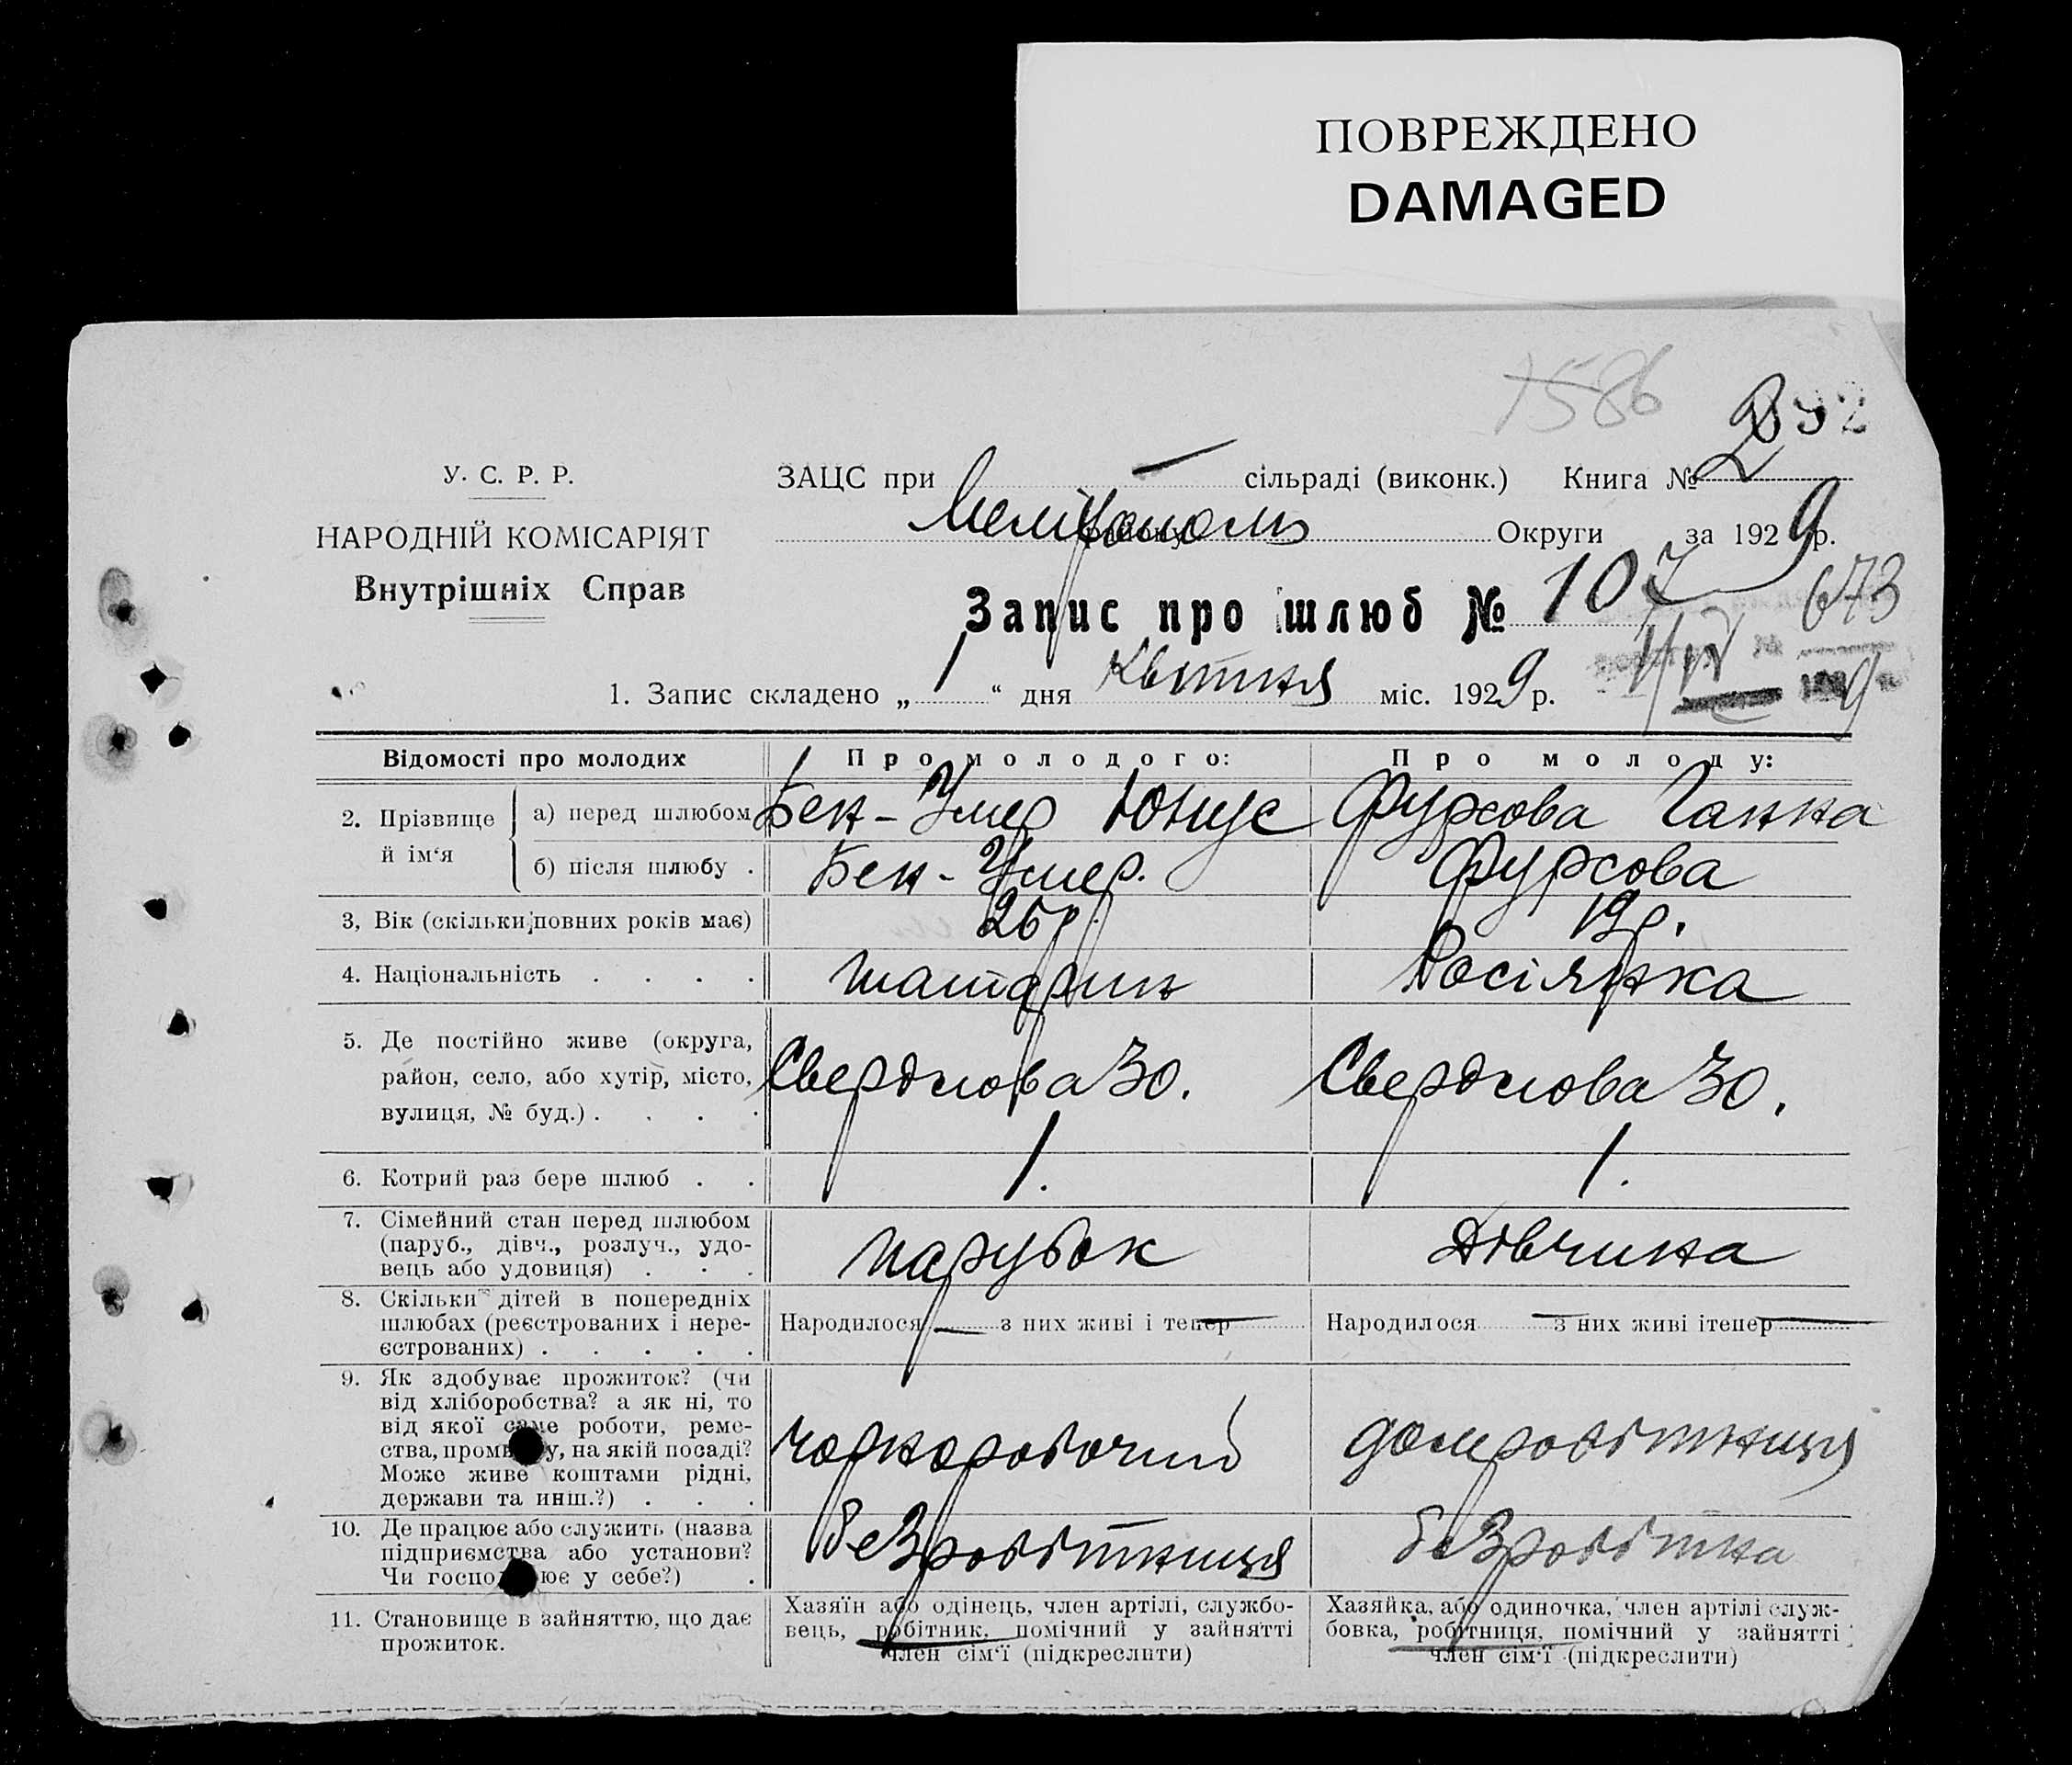 ПОВРЕЖДЕНО
DAMAGED
1586
2
У. С. Р. Р.
НАРОДНІЙ КОМІСАРІЯТ
Внутрішніх Справ
ЗАЦС при — сільраді (виконк.) Книга № 2
Мелітополь району Округи за 1929 р.
Запис про шлюб № 107
673
1/IV
1. Запис складено „ 1 “ дня Квітня міс. 1929 р.
Відомості про молодих Про молодого: Про молоду:
2. Прізвище й ім‘я а) перед шлюбом Бек-Умер Юнус Фурсова Ганна
б) після шлюбу . Бек-Умер. Фурсова
3, Вік (скільки повних років має) 26 р. 19 р.
4. Національність . . . . татарин Росіянка
5. Де постійно живе (округа,
район, село, або хутір, місто,
вулиця, № буд.) . . . . Свердлова 30. Свердлова 30.
6. Котрий раз бере шлюб . . 1. 1.
7. Сімейний стан перед шлюбом
(паруб., дівч., розлуч., удо-
вець або удовиця) . . . парубок дівчина
8. Скільки дітей в попередніх
шлюбах (реєстрованих і нере-
єстрованих) . . . . . Народилося — з них живі і тепер — Народилося — з них живі ітепер —
9. Як здобуває прожиток? (чи
від хліборобства? а як ні, то
від якої саме роботи, реме-
ства, промислу, на якій посаді?
Може живе коштами рідні,
держави та инш.?) . . . чорноробочий домробітниця
10. Де працює або служить (назва
підприємства або установи?
Чи господарює у себе?) . безробітниця безробітна
11. Становище в зайняттю, що дає
прожиток.
Хазяїн або одінець, член артілі, службо-
вець, робітник, помічний у зайнятті
член сім‘ї (підкреслити)
Хазяйка, або одиночка, член артілі служ-
бовка, робітниця, помічний у зайнятті
член сім‘ї (підкреслити)